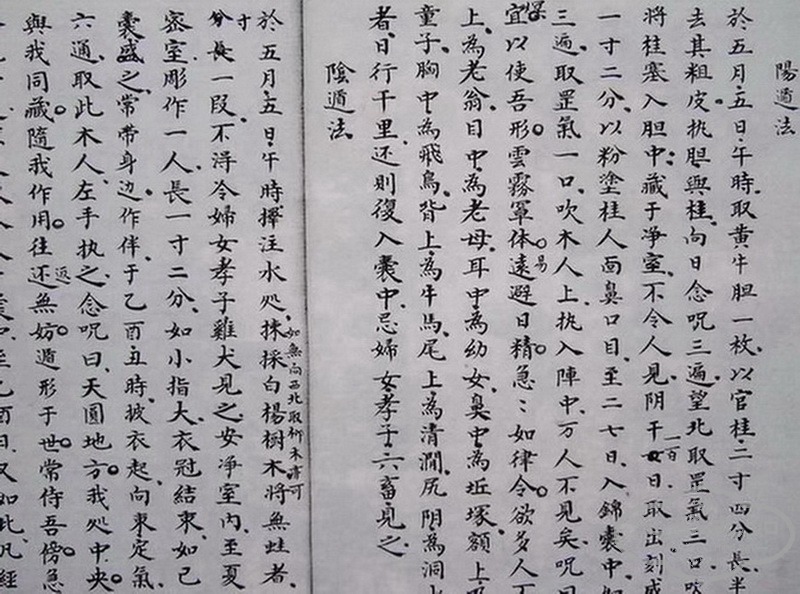 陽遁法
於五月五日午時取黄牛胆一枚以官桂二寸四分長半
去其粗皮执胆與桂向日念呪三遍望北取罡氣三口吹
将桂塞入胆中藏于净室不令人見阴干一百日取出刻成
一寸二分以粉塗桂人面鼻口目至二七日入錦囊中
三遍取罡氣一口吹木人上执入陣中万人不見矣呪曰
宜以使吾形雲霧罩体遠避日精急：如律令欲多人
上為老翁目中為老母耳中為幼女鼻中為坵塚額上
童子胸中為飛鳥背上為牛馬尾上為清澗尻阴為洞
者日行千里还則復入囊中忌婦女孝子六畜見之
陰遁法
於五月五日午時擇注水处採白楊樹木将無蛀者
如無向西北取柳木亦可
寸分長一段不淂令婦女孝子雞犬見之安净室内至夏
密室彫作一人長一寸二分如小指大衣冠結束如己
囊盛之常带身边作伴于乙酉丑時披衣起向東定氣
六通取此木人左手执之念呪曰天圓地方我处中央
與我同藏隨我作用往还無妨遁形于世常侍吾傍急